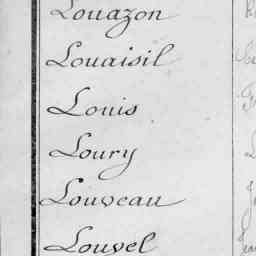 Louazon
Louaisil
Louis
Loury
Louveau
Louvel